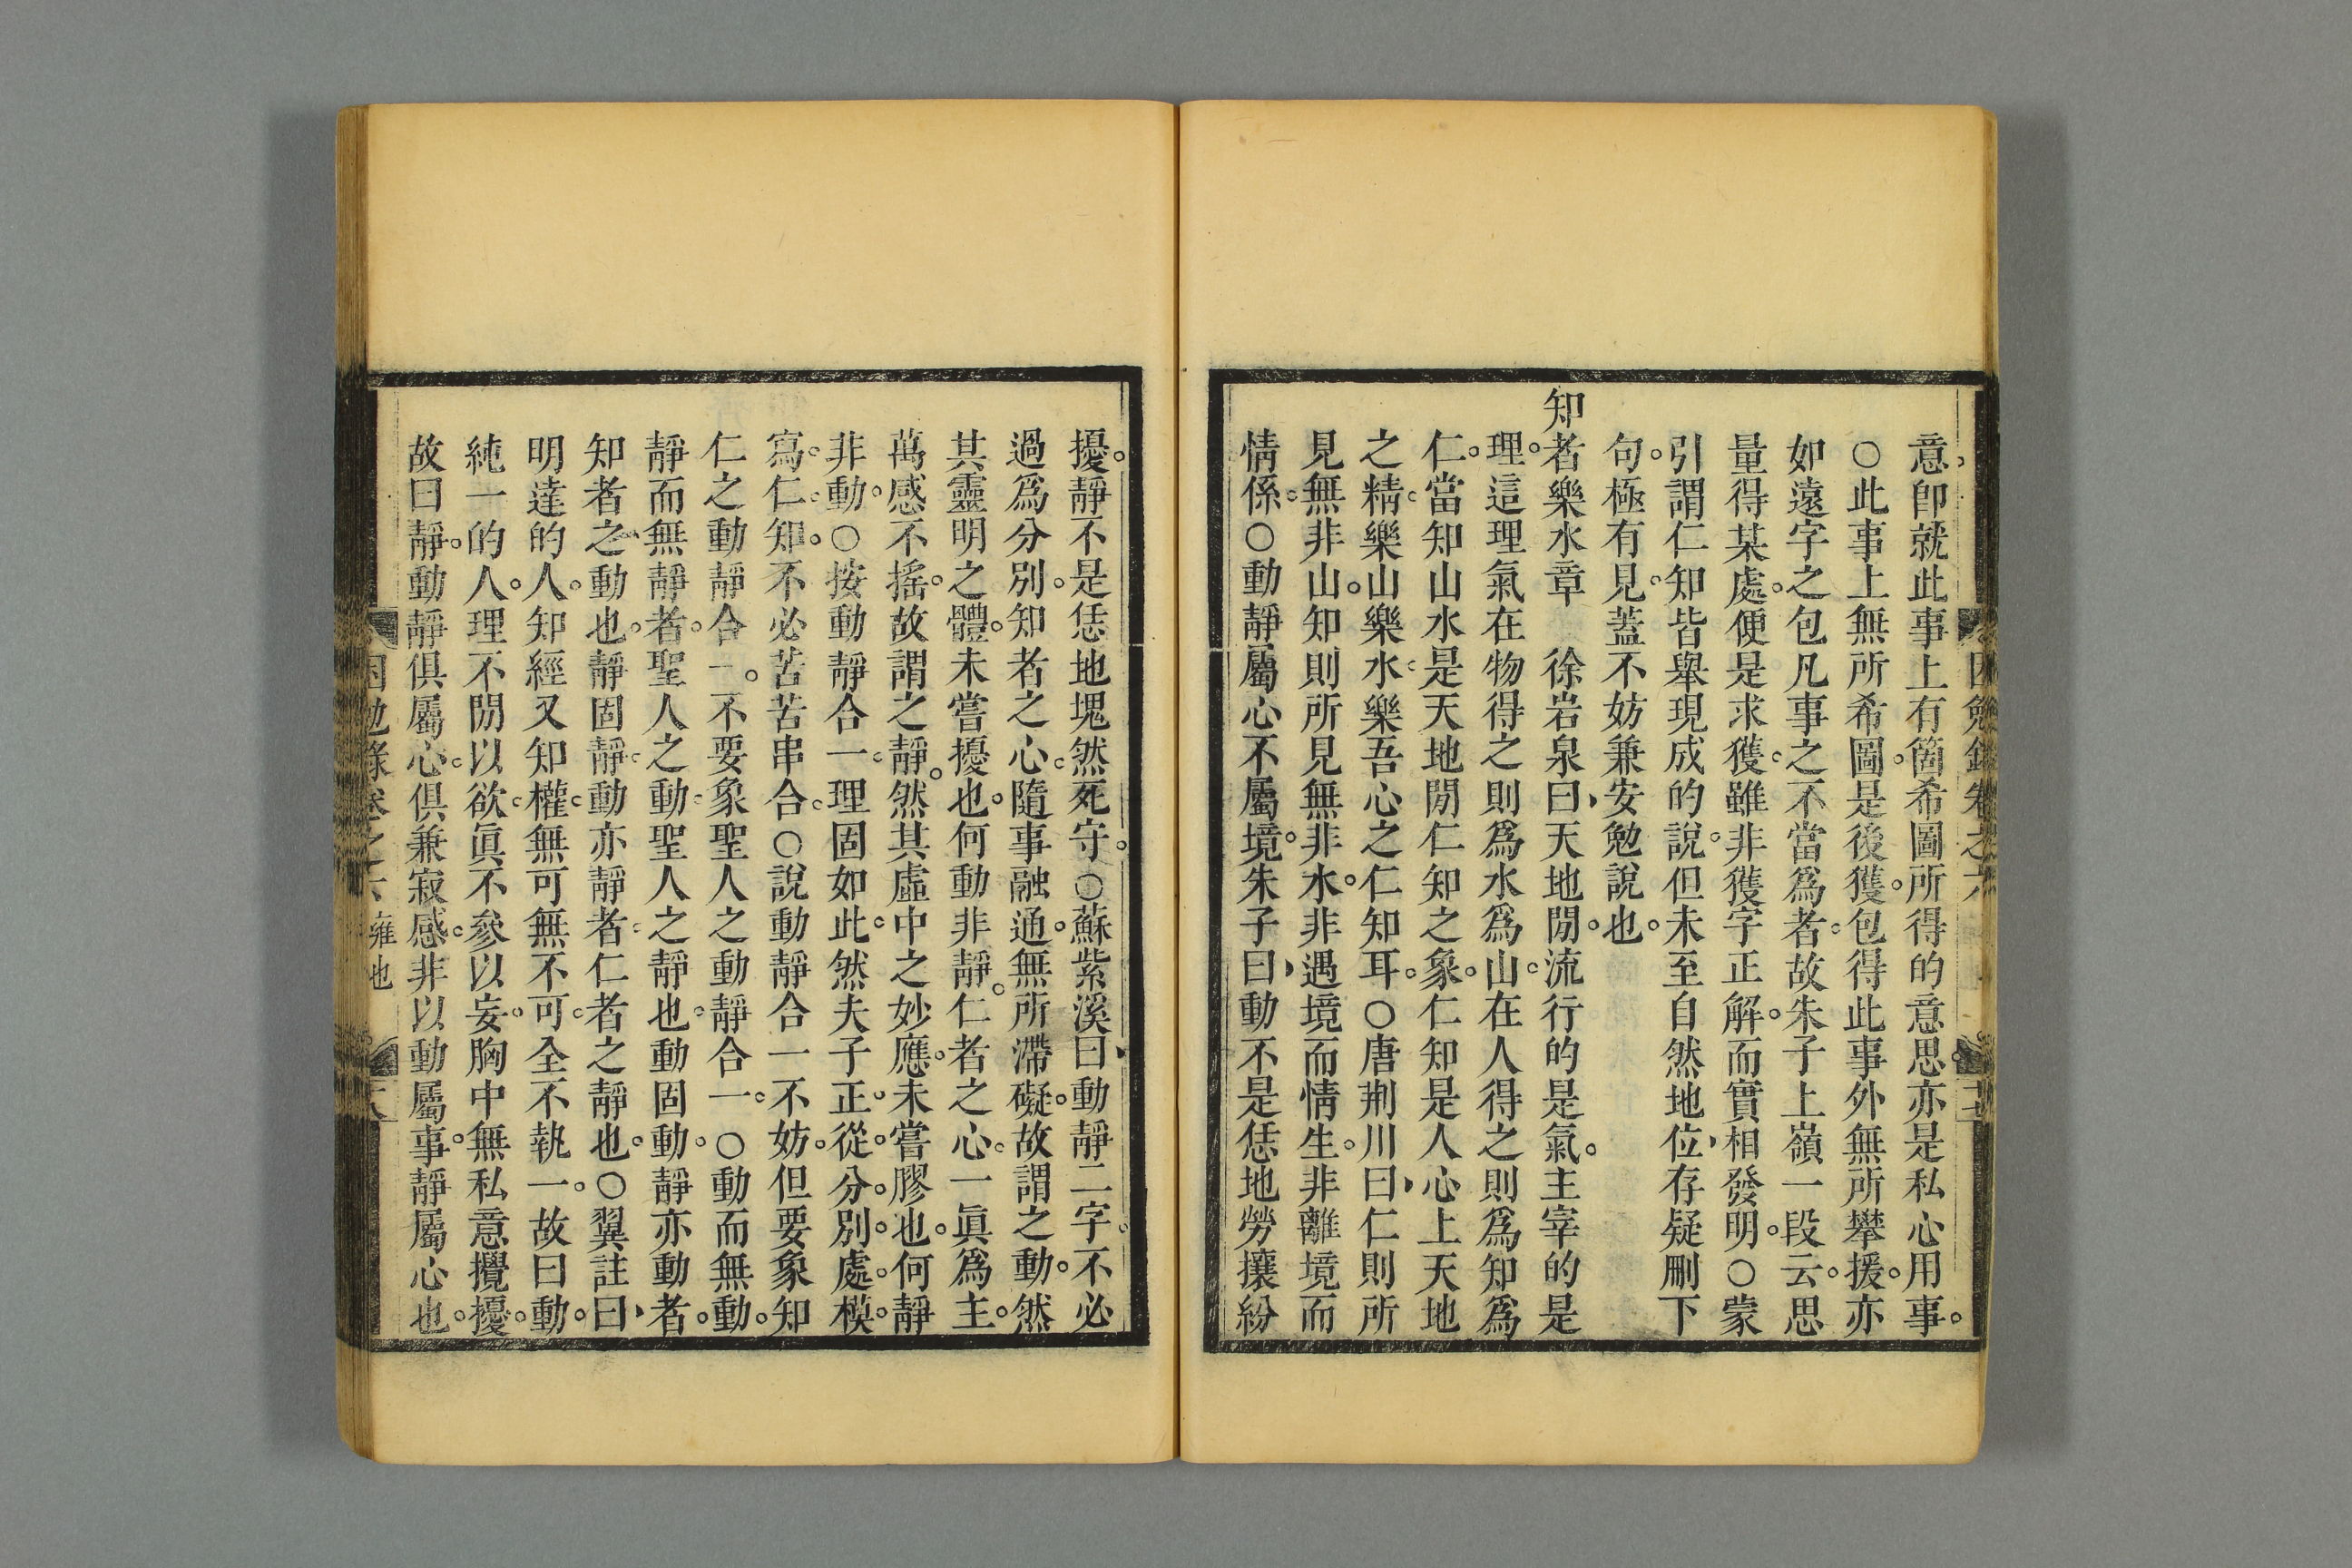 意。卽就此事上有箇希圖所得的意思。亦是私心用事。
○此事上無所希圖。是後獲。包得此事外無所攀援。亦
如遠字之包凡事之不當爲者。故朱子上嶺一段云。思
量得某處。便是求獲。雖非獲字正解。而實相發明。○蒙
引謂仁知皆舉現成的說。但未至自然地位、存疑刪下
句。極有見。蓋不妨兼安勉說也。
知者樂水章　徐岩泉曰、天地閒。流行的是氣。主宰的是
理。這理氣在物得之則爲水爲山。在人得之則爲知爲
仁。當知山水是天地閒仁知之象。仁知是人心上天地
之精。樂山樂水。樂吾心之仁知耳。○唐荆川曰、仁則所
見無非山。知則所見無非水。非遇境而情生。非離境而
情係。○動靜屬心不屬境。朱子曰、動不是恁地勞攘紛
擾。靜不是恁地塊然死守。○蘇紫溪曰、動靜二字。不必
過爲分別。知者之心。隨事融通。無所滯礙。故謂之動。然
其靈明之體。未嘗擾也。何動非靜。仁者之心。一眞爲主。
萬感不搖。故謂之靜。然其虛中之妙應。未嘗膠也。何靜
非動。○按動靜合一。理固如此。然夫子正。從。分。別。處。模。
寫。仁。知。不必苦苦串合。○說動靜合一不妨。但要象知
仁之動靜合一。不要象聖人之動靜合一。○動而無動。
靜而無靜者。聖人之動。聖人之靜也。動固動。靜亦動者。
知者之動也。靜固靜。動亦靜者。仁者之靜也。○翼註曰、
明達的人。知經又知權。無可無不可。全不執一。故曰動。
純一的人。理不閒以欲。眞不參以妄。胸中無私意攪擾。
故曰靜。動靜俱屬心。俱兼寂感。非以動屬事。靜屬心也。
困勉錄卷之六 雍也